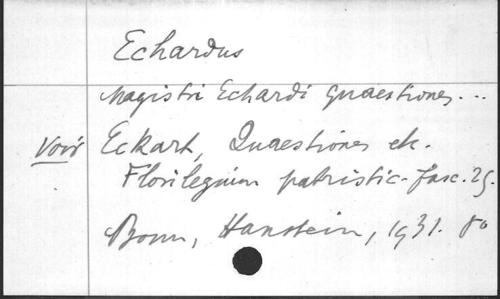 Echardus
Magistri Echardi quaestiones...
Voir Eckart, Quaestiones etc.
Florilegium patristic. fasc. 25.
Bonn, Hanstein, 1931. 8o